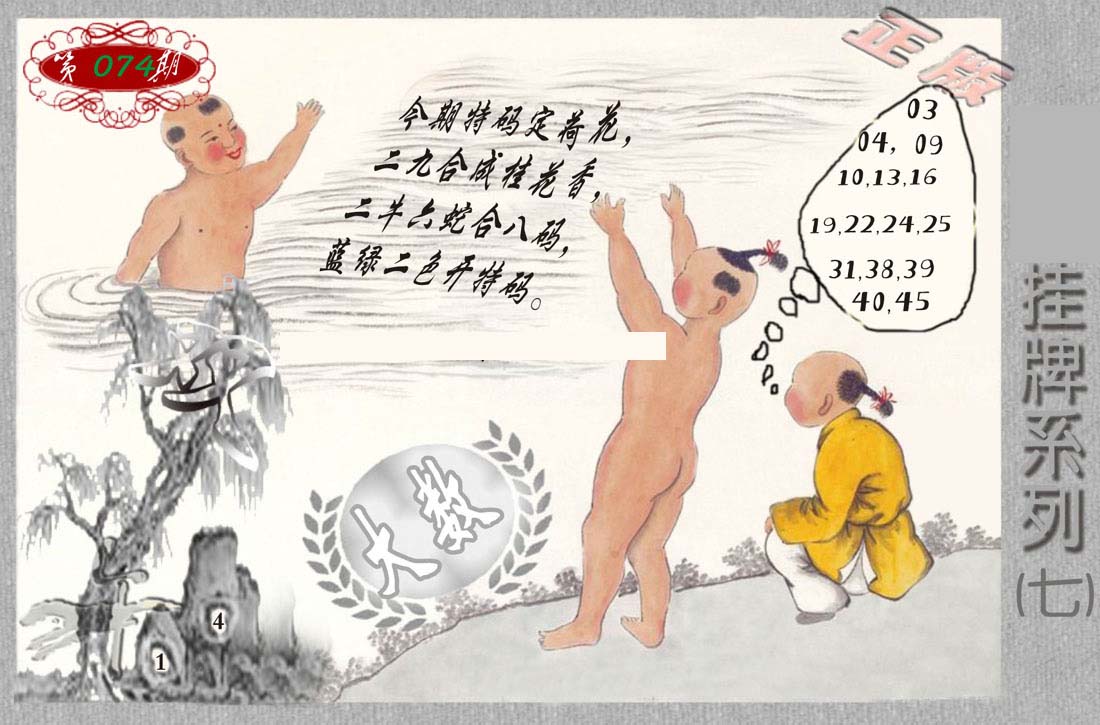 第 074 期
正版
今期特码定荷花，
二九合成桂花香，
二牛六蛇合八码，
蓝绿二色开特码。
03
04, 09
10,13,16
19,22,24,25
31,38,39
40,45
挂牌系列(七)
大数
4
1